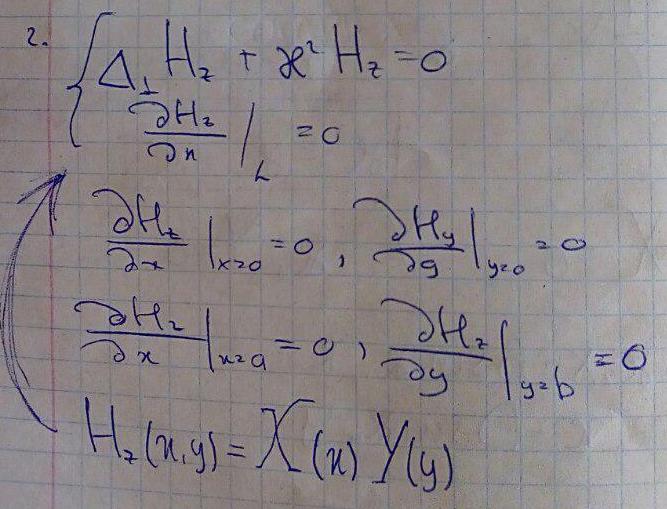 2. { Δ⊥ H_z + æ² H_z = 0
∂H_z/∂n |_L = 0
∂H_z/∂x |_{x=0} = 0 , ∂H_y/∂y |_{y=0} = 0
∂H_z/∂x |_{x=a} = 0 , ∂H_z/∂y |_{y=b} = 0
H_z(x,y) = X(x) Y(y)